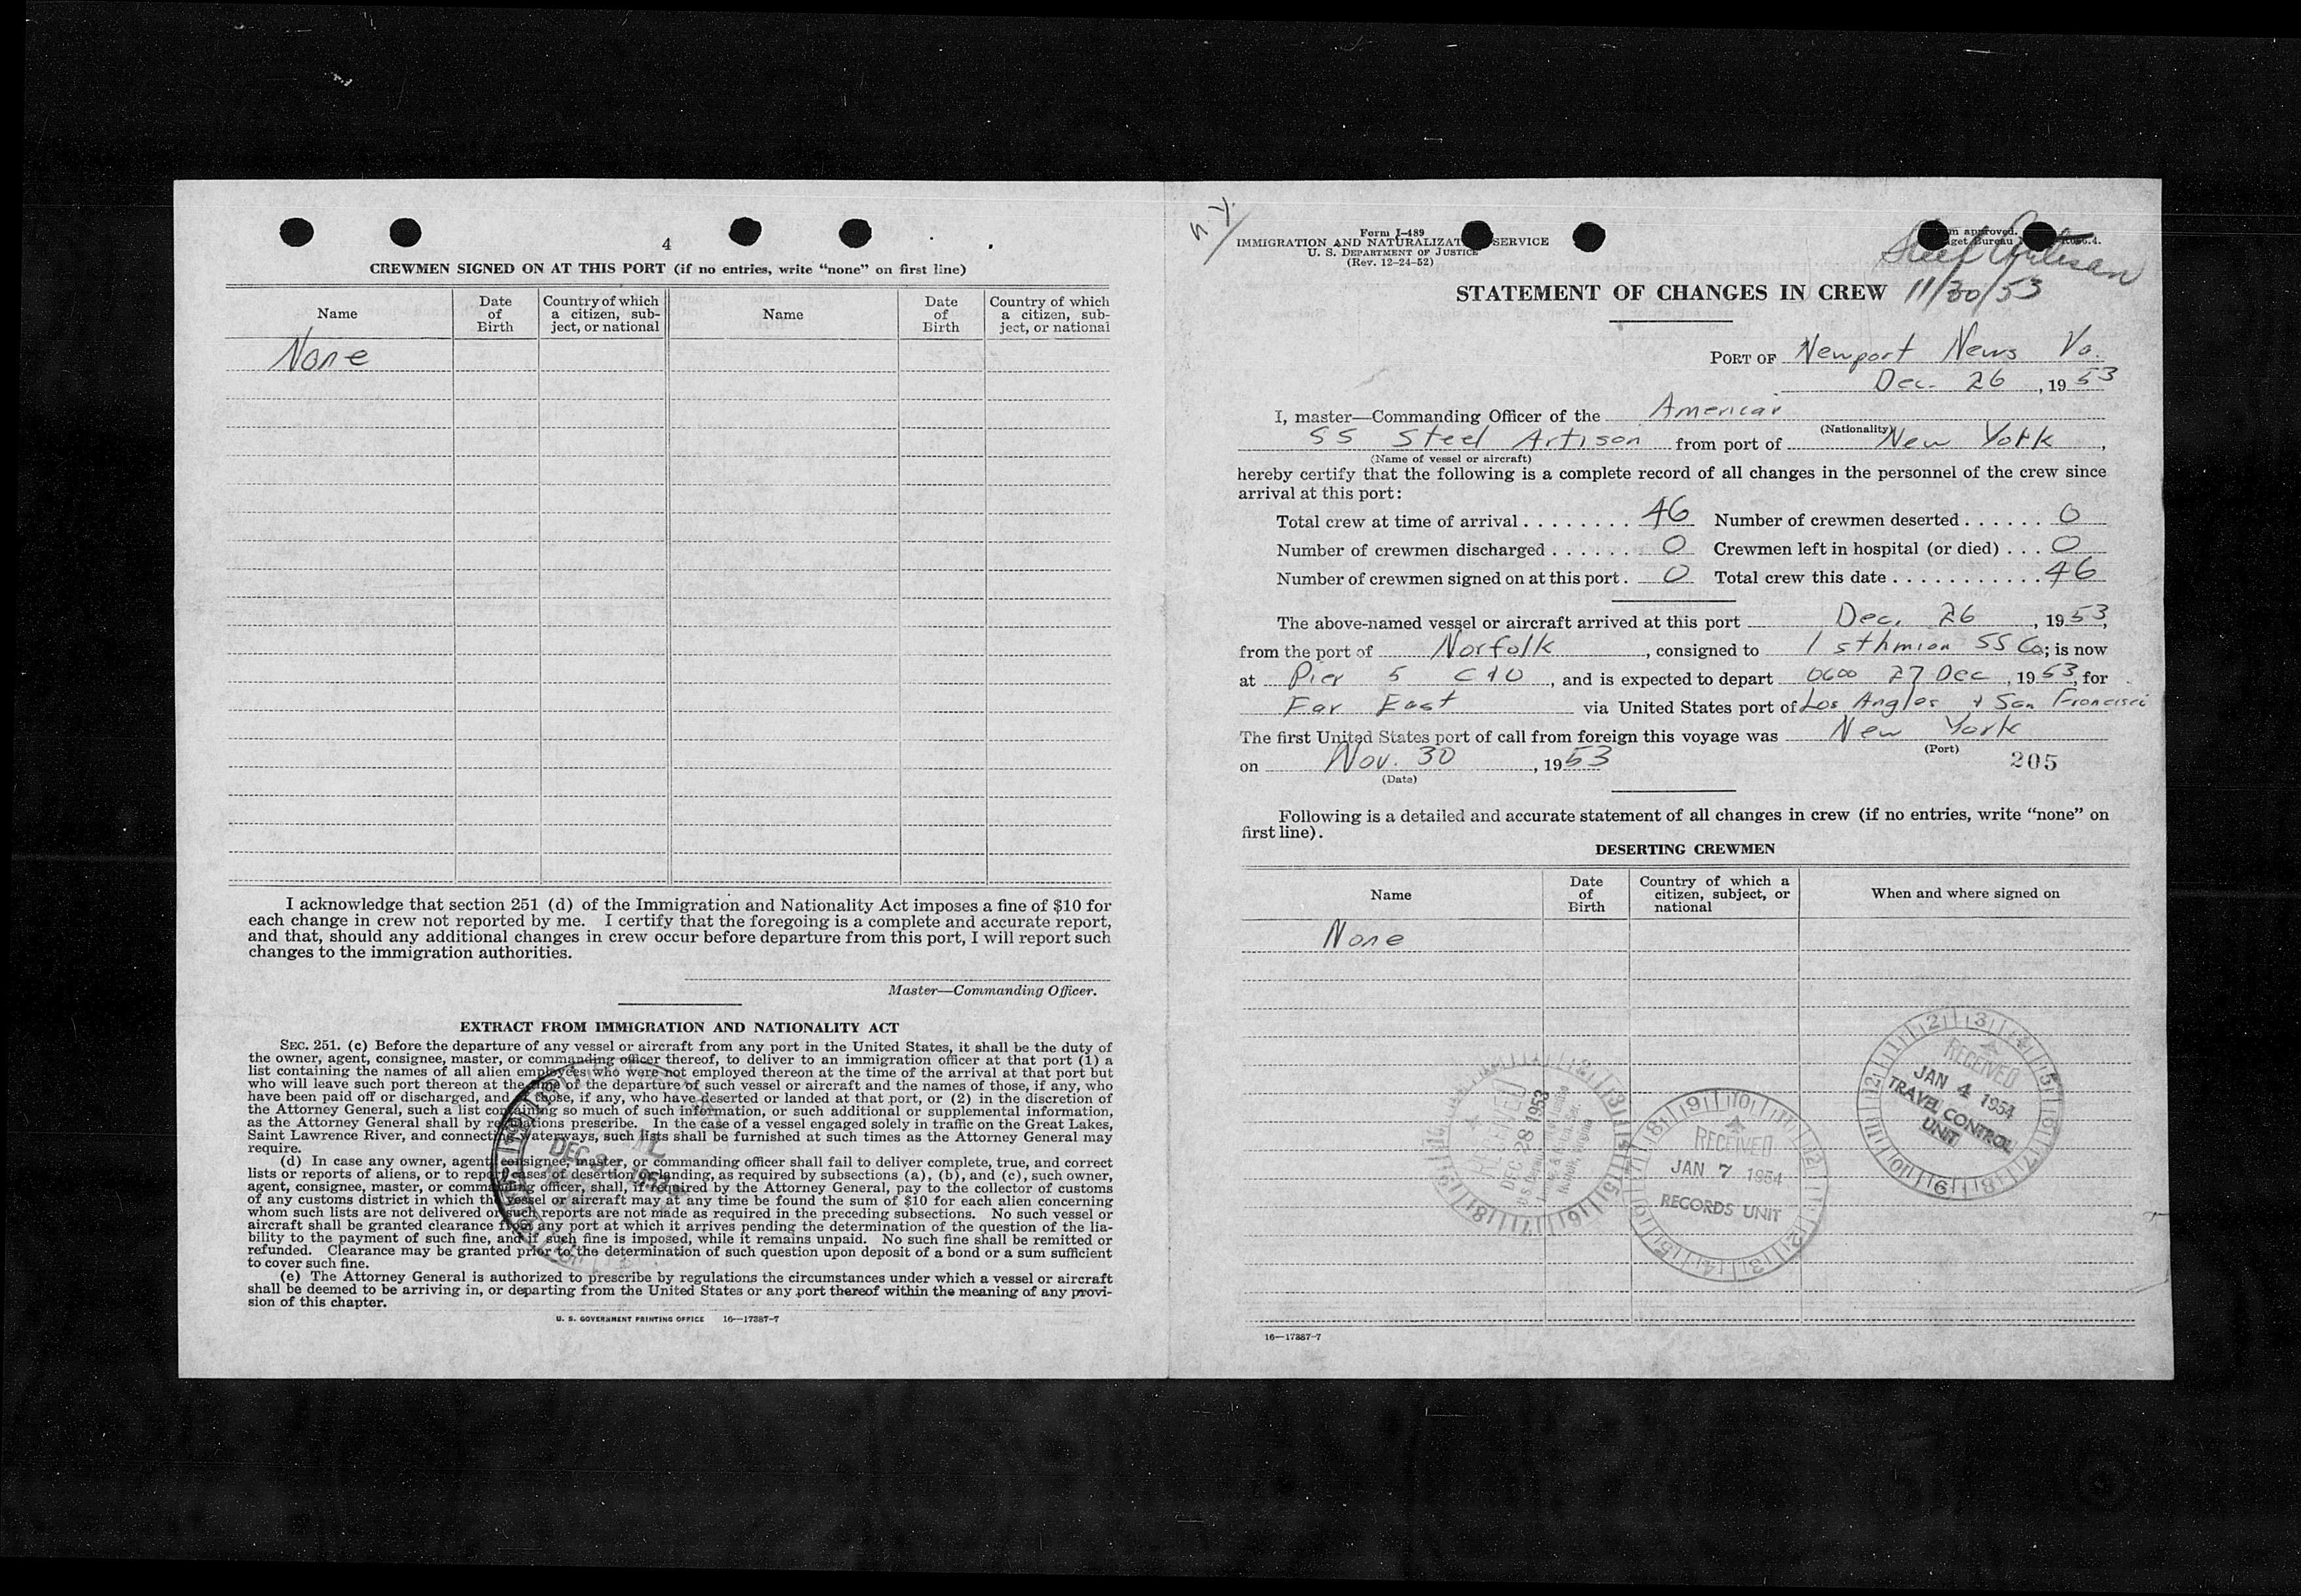 4
CREWMEN SIGNED ON AT THIS PORT (if no entries, write "none" on first line)
Name
Date of Birth
Country of which a citizen, subject, or national
Name
Date of Birth
Country of which a citizen, subject, or national
None
I acknowledge that section 251 (d) of the Immigration and Nationality Act imposes a fine of $10 for
each change in crew not reported by me. I certify that the foregoing is a complete and accurate report,
and that, should any additional changes in crew occur before departure from this port, I will report such
changes to the immigration authorities.
Master—Commanding Officer.
EXTRACT FROM IMMIGRATION AND NATIONALITY ACT
SEC. 251. (c) Before the departure of any vessel or aircraft from any port in the United States, it shall be the duty of
the owner, agent, consignee, master, or commanding officer thereof, to deliver to an immigration officer at that port (1) a
list containing the names of all alien employees who were not employed thereon at the time of the arrival at that port but
who will leave such port thereon at the time of the departure of such vessel or aircraft and the names of those, if any, who
have been paid off or discharged, and of those, if any, who have deserted or landed at that port, or (2) in the discretion of
the Attorney General, such a list containing so much of such information, or such additional or supplemental information,
as the Attorney General shall by regulations prescribe. In the case of a vessel engaged solely in traffic on the Great Lakes,
Saint Lawrence River, and connecting waterways, such lists shall be furnished at such times as the Attorney General may
require.
(d) In case any owner, agent, consignee, master, or commanding officer shall fail to deliver complete, true, and correct
lists or reports of aliens, or to report cases of desertion or landing, as required by subsections (a), (b), and (c), such owner,
agent, consignee, master, or commanding officer, shall, if required by the Attorney General, pay to the collector of customs
of any customs district in which the vessel or aircraft may at any time be found the sum of $10 for each alien concerning
whom such lists are not delivered or such reports are not made as required in the preceding subsections. No such vessel or
aircraft shall be granted clearance from any port at which it arrives pending the determination of the question of the lia-
bility to the payment of such fine, and if such fine is imposed, while it remains unpaid. No such fine shall be remitted or
refunded. Clearance may be granted prior to the determination of such question upon deposit of a bond or a sum sufficient
to cover such fine.
(e) The Attorney General is authorized to prescribe by regulations the circumstances under which a vessel or aircraft
shall be deemed to be arriving in, or departing from the United States or any port thereof within the meaning of any provi-
sion of this chapter.
U. S. GOVERNMENT PRINTING OFFICE 16—17387-7
n y.
Form I-489
IMMIGRATION AND NATURALIZAT SERVICE
U. S. DEPARTMENT OF JUSTICE
(Rev. 12-24-52)
m approved.
get Bureau
Steel Artisan
11/30/53
STATEMENT OF CHANGES IN CREW
PORT OF Newport News Va.
Dec. 26, 1953
I, master—Commanding Officer of the American
(Nationality)
SS Steel Artison from port of New York,
(Name of vessel or aircraft)
hereby certify that the following is a complete record of all changes in the personnel of the crew since
arrival at this port:
Total crew at time of arrival . . . . . . . . 46 Number of crewmen deserted . . . . . . 0
Number of crewmen discharged . . . . . . 0 Crewmen left in hospital (or died) . . . 0
Number of crewmen signed on at this port . 0 Total crew this date . . . . . . . . . . . 46
The above-named vessel or aircraft arrived at this port Dec. 26, 1953,
from the port of Norfolk, consigned to Isthmian SS Co; is now
at Pier 5 C&O, and is expected to depart 0600 27 Dec, 1953, for
Far East via United States port of Los Angles & San Francisci
The first United States port of call from foreign this voyage was New York
(Port)
on Nov. 30, 1953
(Date)
205
Following is a detailed and accurate statement of all changes in crew (if no entries, write "none" on
first line).
DESERTING CREWMEN
Name
Date of Birth
Country of which a citizen, subject, or national
When and where signed on
None
RECEIVED
DEC 28 1953
RECEIVED
JAN 7 1954
RECORDS UNIT
RECEIVED
JAN 4 1954
TRAVEL CONTROL
UNIT
16—17387-7